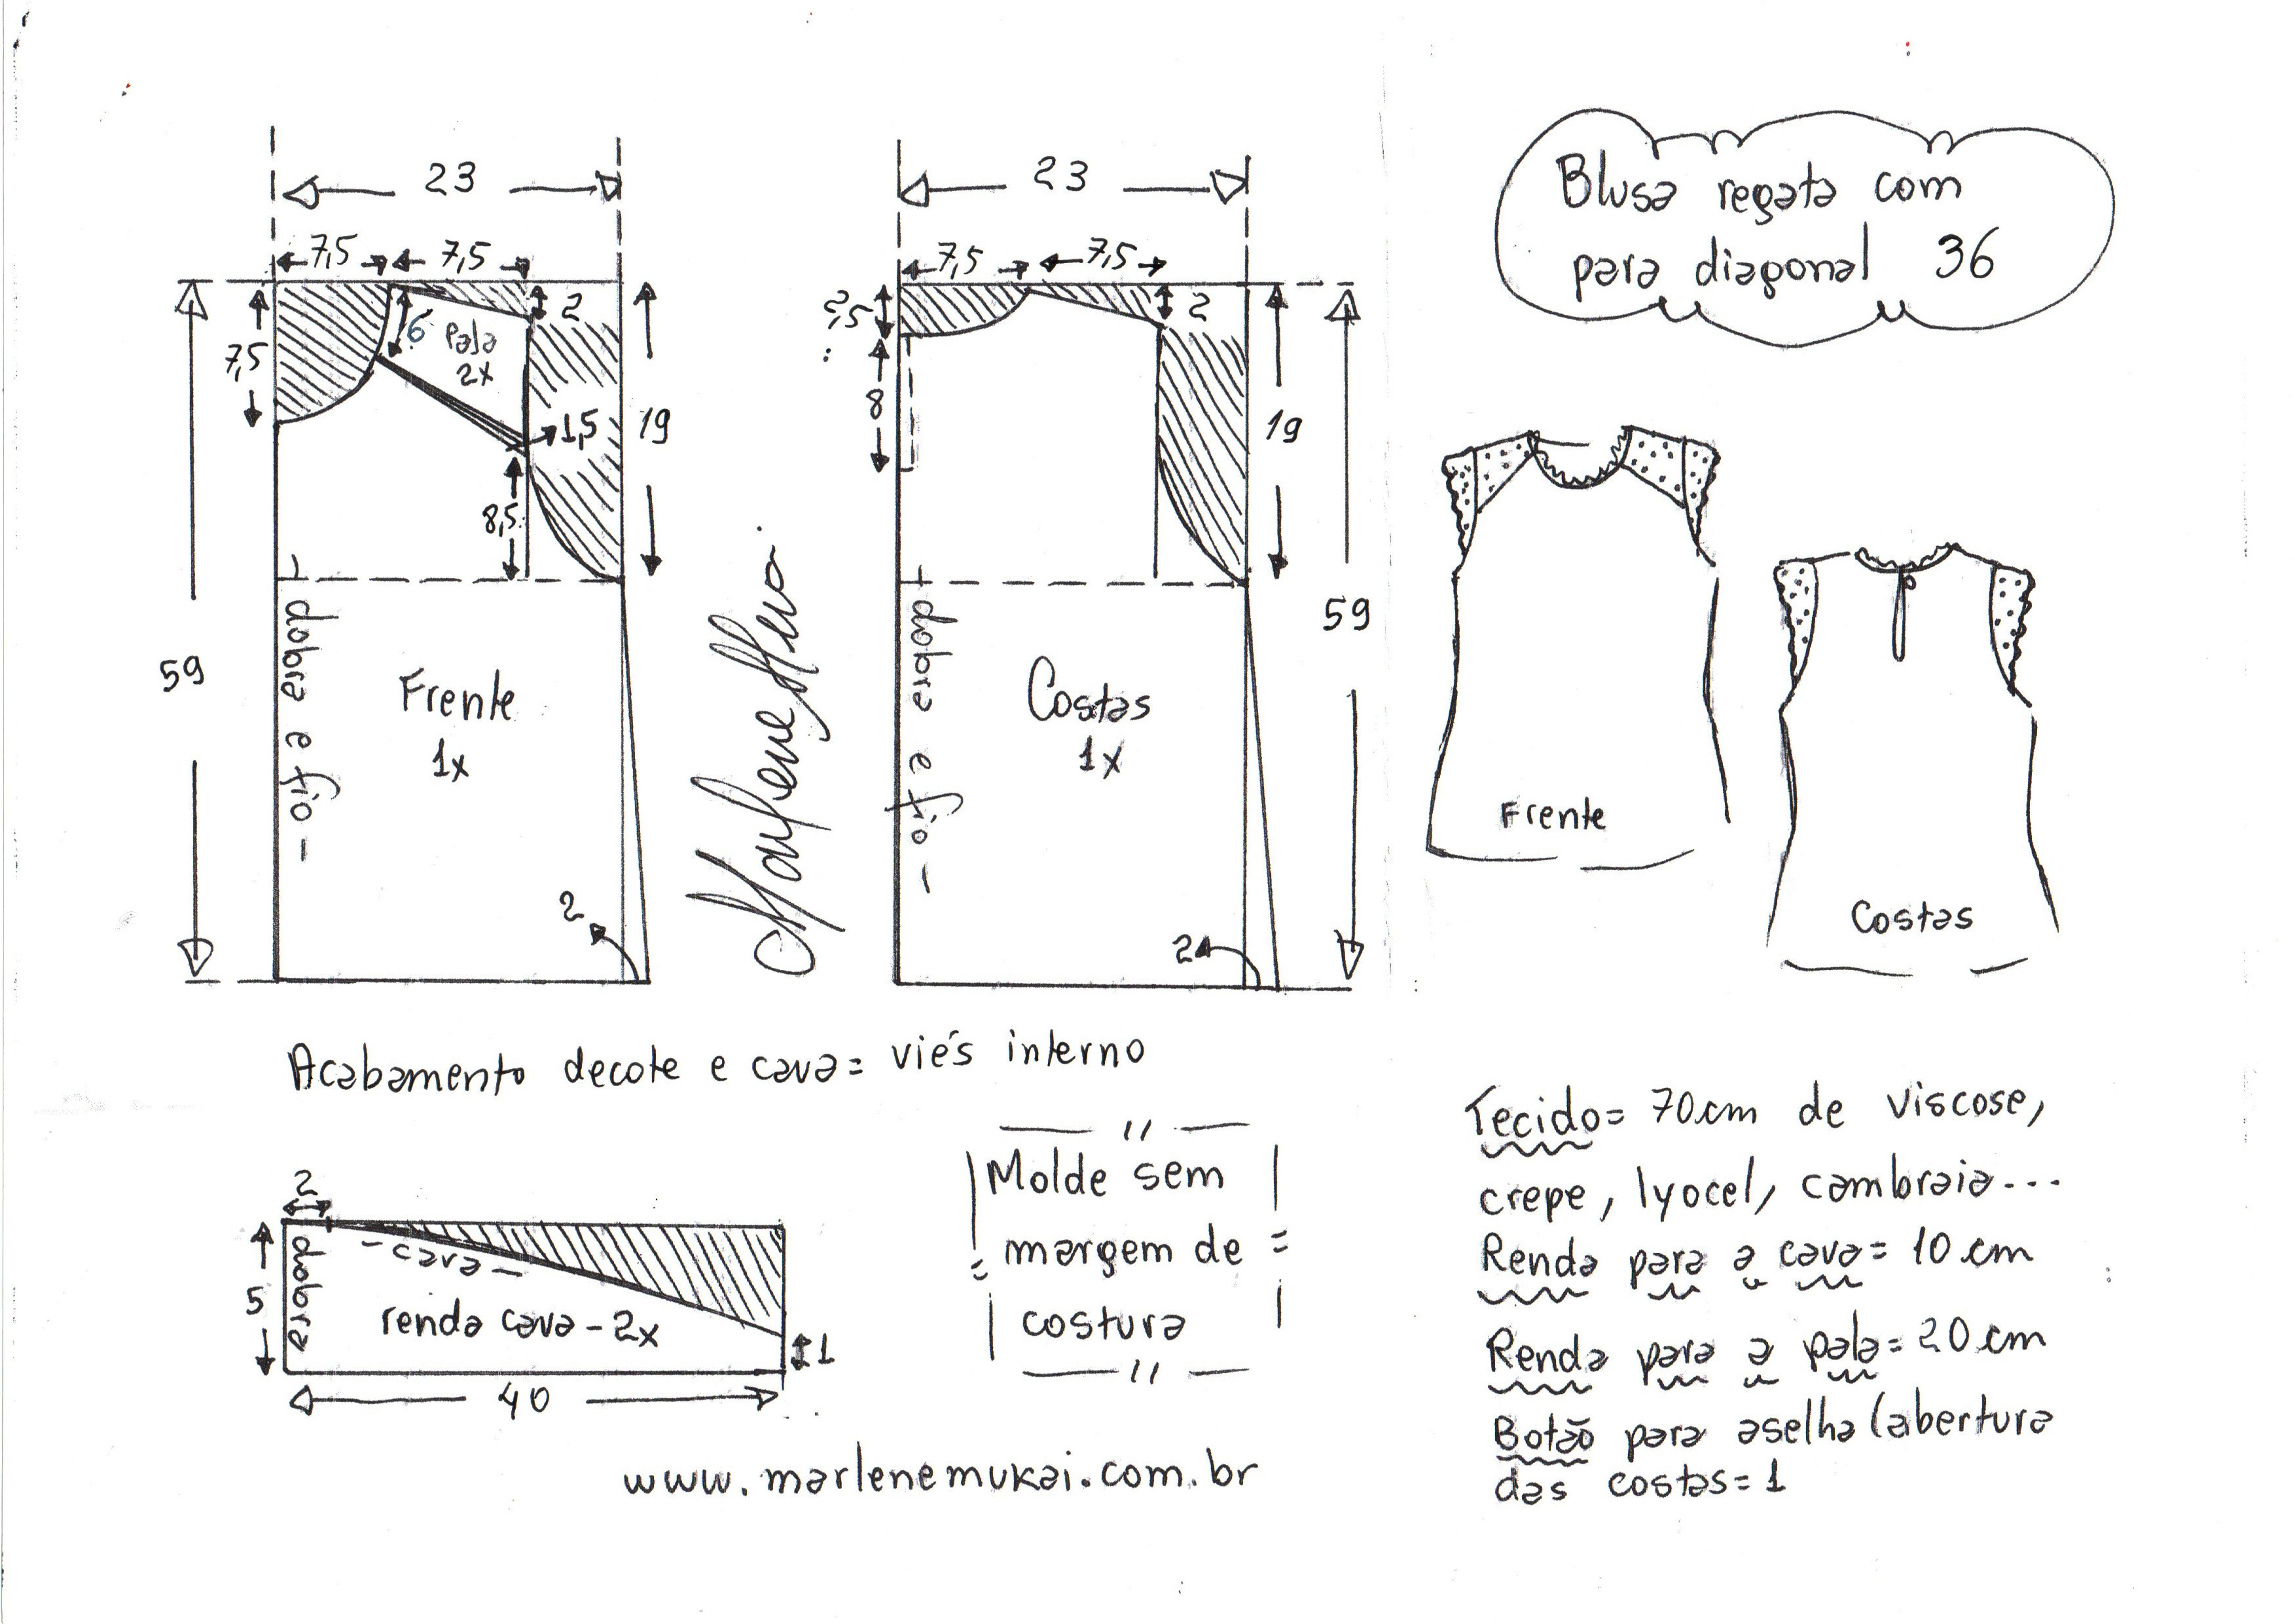 23
7,5
7,5
2
7,5
6
Pala
2x
1,5
19
8,5
59
dobra e fio
Frente
1x
2
23
7,5
7,5
2
2,5
8
19
59
dobra e fio
Costas
1x
2
Blusa regata com
para diagonal 36
Frente
Costas
Acabamento decote e cava= viés interno
2
5
dobra
-cava-
renda cava-2x
1
40
Molde sem
margem de
costura
www.marlenemukai.com.br
Tecido= 70cm de viscose,
crepe, lyocel, cambraia...
Renda para a cava= 10 cm
Renda para a pala= 20 cm
Botão para aselha (abertura
das costas= 1